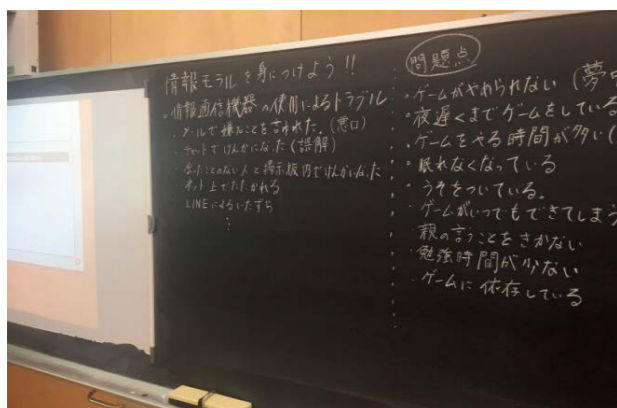 情報モラルを身につけよう!!
。情報通信機器の使用によるトラブル
・メールで嫌なことを言われた。(悪口)
・チャットでけんかになった(誤解)
・会ったことのない人と掲示板内でけんかになった
・ネット上でたたかれる
・LINEによるいたずら
⋮
問題点
・ゲームがやめられない(夢中
・夜遅くまでゲームをしている
・ゲームをやる時間が多い(
・眠れなくなっている
・うそをついている。
・ゲームがいつでもできてしまう
・親の言うことをきかない
・勉強時間が少ない
・ゲームに依存している